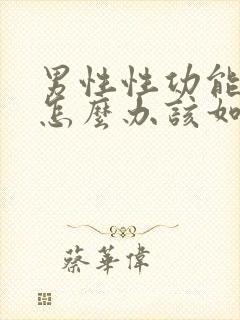 男性性功能
怎麼办該如
蔡華偉